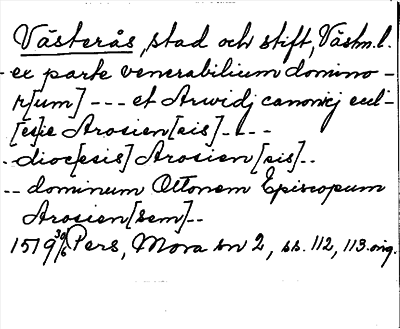 Västerås, stad och stift, Västm. l.
- ex parte venerabilium domino-
r[um] --- et Arwidj canonicj eccl-
[es]ie Arosien[sis] _ _ -
- dioc[esis] Arosien[sis] - -
-- dominum Ottonem Episcopum
Arosien[sem] --
1519 30/6 Pers, Mora sn 2, ss. 112, 113. orig.